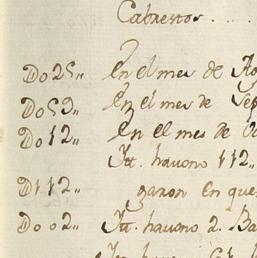 Cabrestos . . . .
Do 25,, En el mes de Ag
Do 59,, En el mes de Sep
Do 12,, En el mes de Oc
Itt. havono 112,,
D112,, zaron en que
Do 02,, Itt. havono 2. Ba